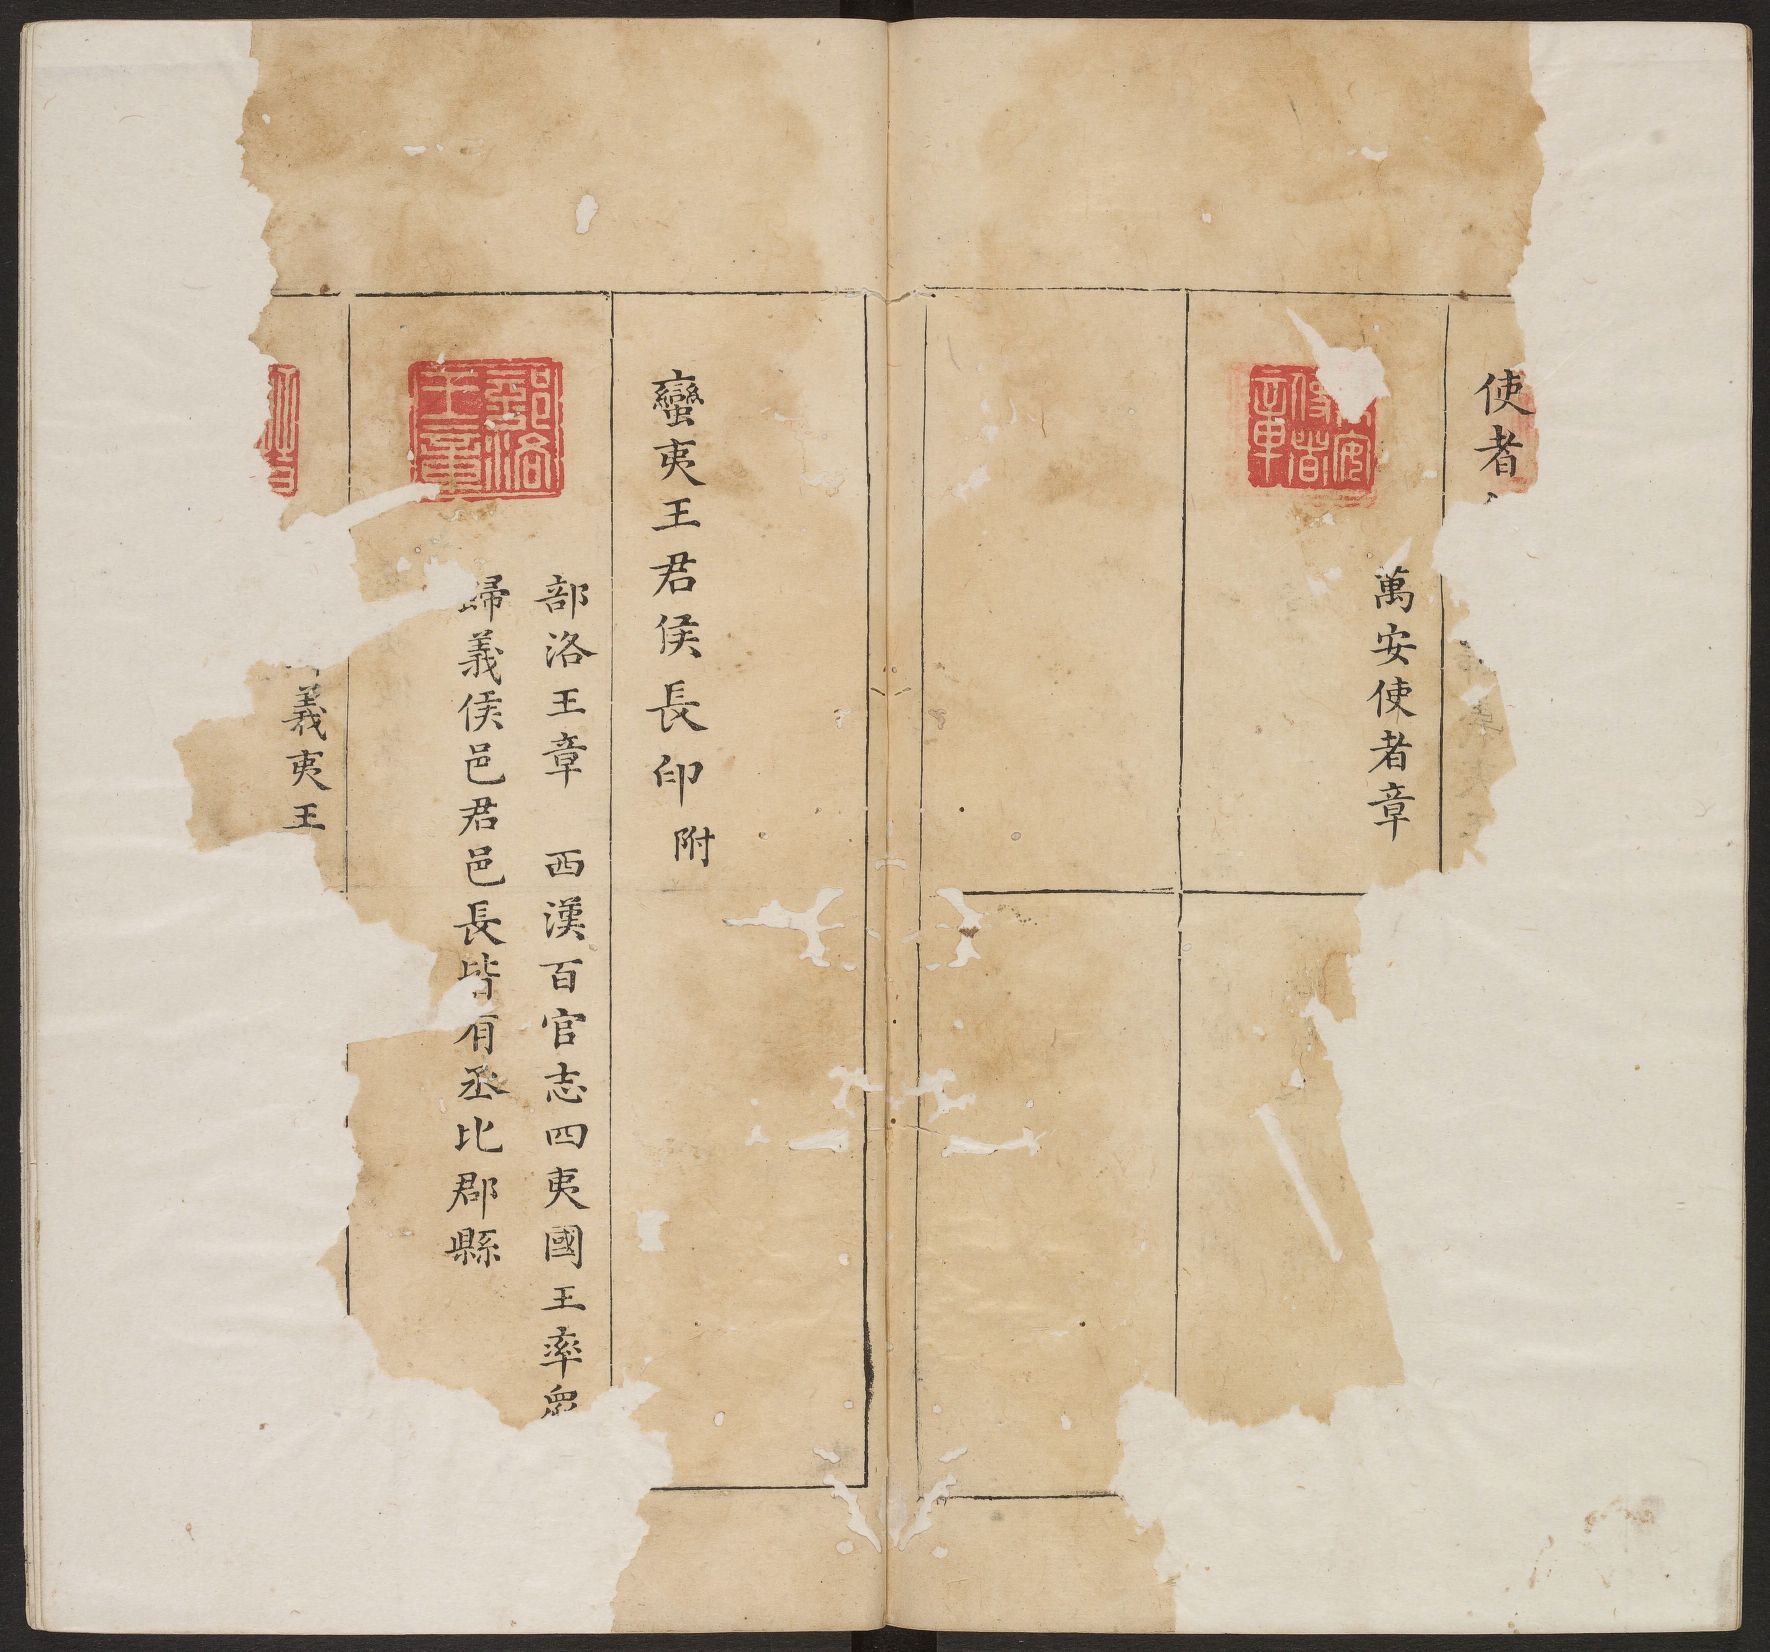 使者
萬安使者章
安使者章
蠻夷王君侯長印附
部洛王章
部洛王章 西漢百官志四夷國王率眾
歸義侯邑君邑長皆有丞比郡縣
義夷王